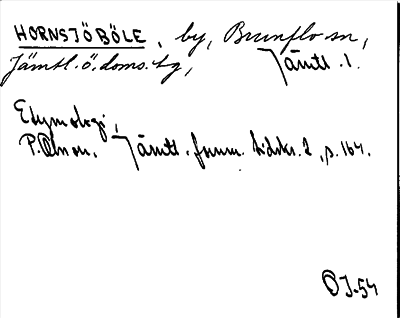 HORNSJÖBÖLE, by, Brunflo sn,
Jämtl. ö. doms. tg, Jämtl. l.
Etymologi,
P. Olsson, Jämtl. fornm. tidskr. 2, s. 164.
OJ-54